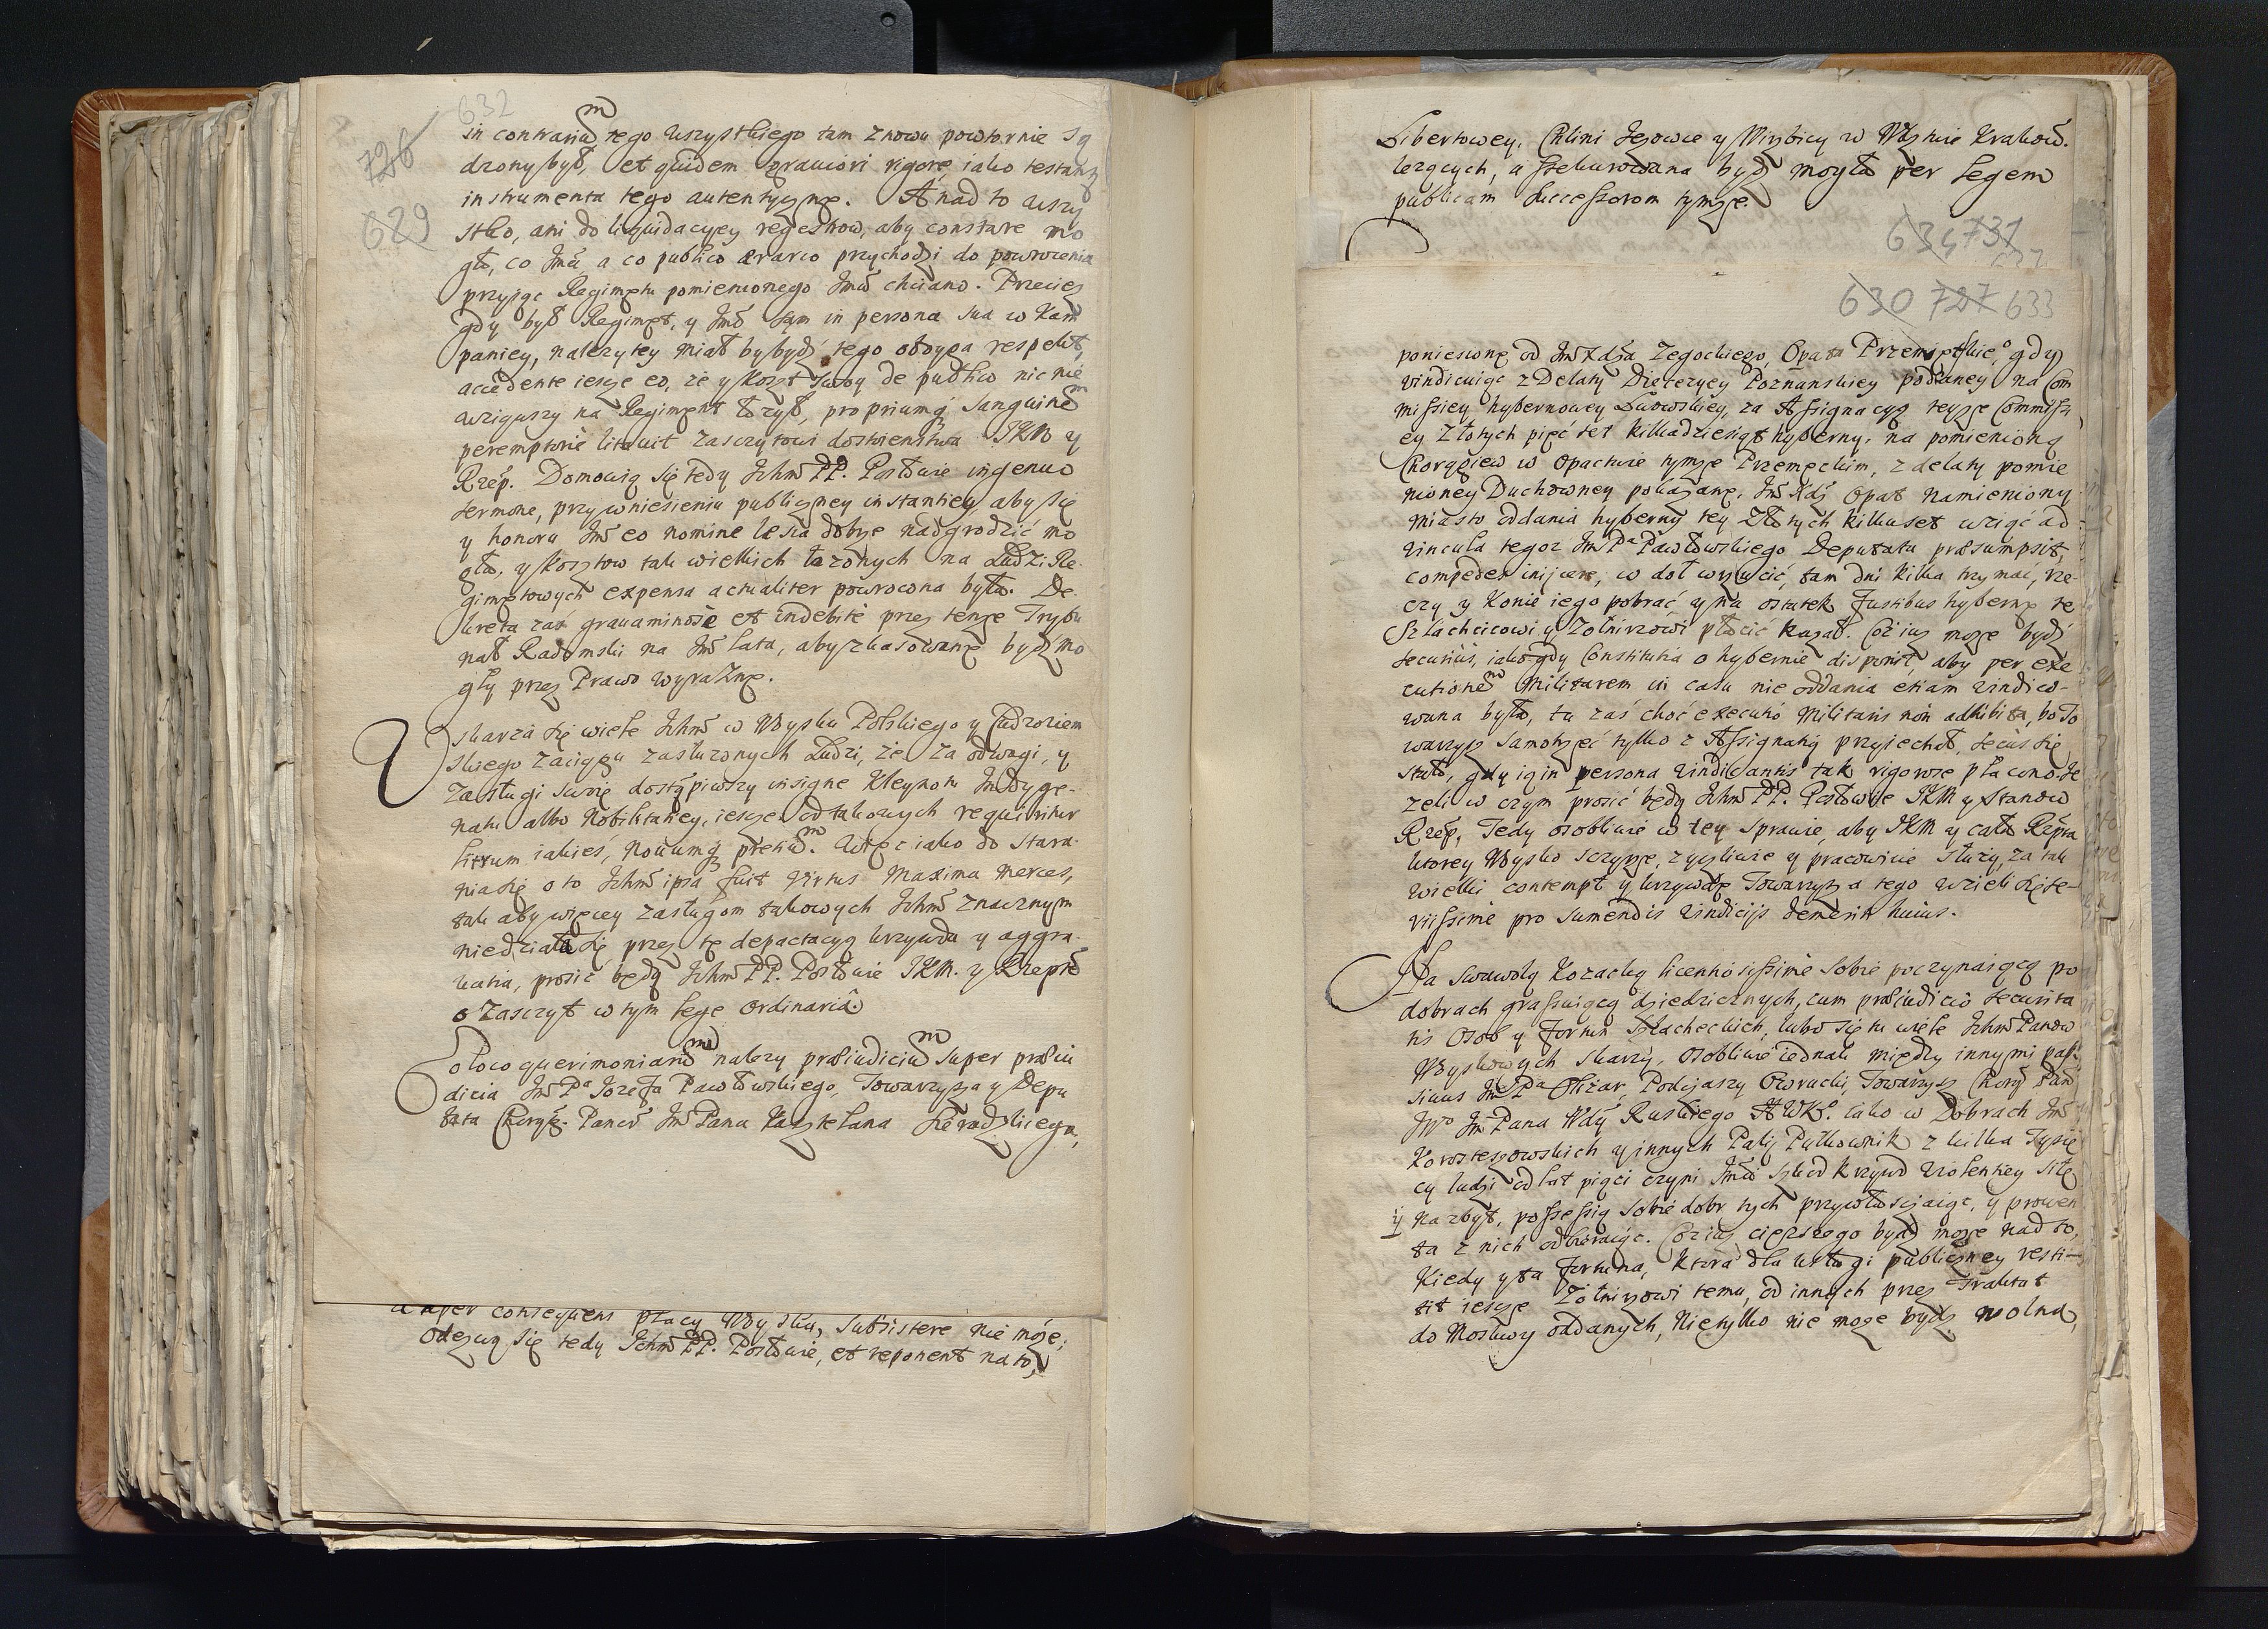 632
728
629
in contrariũ tego wszystkiego tam znowu powtornie są
dzony był, et quidem graviori rigore, iako testanz
instrumenta tego autentyczne. A nad to wszy
stko, ani do liquidacyey regestrow, aby constare mo
gło, co Jmći a co publico aerario przychodzi do powrocenia
przyiąc Regimentu pomienionego Jmći chciano. Przeciesz
gdy był Regiment, y Jmć sam in persona sua w Kam
paniey, należytey miał by bydź tego oboyga respekt,
accedente iescze eo, że y koszt swoy de publico nic nie
wziąwszy na Regiment łożył, propriumq; sanguinem
peremptorie litavit zasczytowi dostoienstwa JKM y
Rzep. Domowią się tedy Ichm PP. Posłowie ingenuo
sermone, przy wniesieniu publiczney instantiey, aby się
y honoru Jmć eo nomine lesia dobrze nadgrodzić mo
gła, y kosztow tak wielkich łożonych na Ludzi Re
gimentowych expensa actualiter powrocona była. De
kreta zaś gravaminosè et indebitè przez tenże Trybu
nał Radomski na Jmć lata, aby zkasowane bydź mo
gły przez Prawo wyraźne.
Uskarża się wiele Ichm w Woysku Polskiego y Cudzoziem
skiego zaciągu zasłużonych Ludzi, że za odwagi, y
zasługi swoie dostąpiwszy insigne kleynotu Indyge-
natu albo Nobilitatiey, iescze od takowych requiritur
litrum iakieś, novumq; pretiũ. Więc iako do stara-
nia się o to Ichm ipsa fuit virtus maxima merces,
tak aby więcey zasługom takowych Ichm znacznym
niedziała się przez tę depactacyą krzywda y aggra-
vatia, prosić będą Ichm PP. Posłowie JKM. y Rzeptę
o zasczyt w tym lege ordinaria
Eo loco querimoniarũ należy praeiudiciũ super praeiu
dicia Jm Pa Jozefa Pawłowskiego, Towarzysza y Depu
tata Chorąg. Panc. Jm Pana Kasztelana Sieradzkiego,
a aper consequens płacy Woysku, subsistere nie może;
Odezwą się tedy Ichm PP. Posłowie, et reponent na to,
Libertowey, Chlini Jezowce y Wirzbicy w Wdztwie Krakow.
leżących, assekurowana bydź mogła per legem
publicam successorom tymże.
634 731
630 727 633
poniesione od Jm Xdza Zegockiego Opata Przemętskiego, gdy
vindicuiąc z Delaty Dieceziey Poznanskiey podaney na Com
missiey hybernowey Lwowskiey, za Assignacyą teyże Commissi
ey złotych pięć set kilkadziesiąt hyberny, na pomienioną
Chorągiew w Opactwie tymże Przemęckim, z delaty pomie
nioney Duchowney pokazane, Jm Xdz Opat namieniony
miasto oddania hyberny tey złotych kilkuset wziąć ad
vincula tegoz Jm Pa Pawłowskiego Deputata praesumpsit,
compedes injicere, w doł wrzucić, tam dni kilka trzymać, rze-
czy y konie iego pobrać, y na ostatek fustibus hybernę te
Szlachcicowi y Zołnirzowi płacić kazał. Coż iuż może bydź
securius, iako gdy Constitutia o hybernie disponit, aby per exe
cutionẽ militarem in casu nie oddania etiam vindico-
wana była, tu zaś choć executio militaris non adhibita, bo To
warzysz samotrzeć tylko z Assignatią przyiechał, secus się
stało, gdy ią in persona vindicantis tak rigorose płacono. Je
zeli w czym prosić będą Ichm PP. Posłowie JKM y Stanow
Rzep, Tedy osobliwie w tey sprawie, aby JKM y cała Rzepta
ktorey Woysko sczyrze, zyczliwie y pracowicie służy, za tak
wielki contempt y krzywdę Towarzysza tego wzieli się se-
riissime pro sumendis vindicijs demerita huius.
Na swawolą Kozacką licentiosissime sobie poczynaiącą po
dobrach grassuiącą dziedzicznych, cum praeiudicio securita
tis osob y fortun szlacheckich, lubo się tu wiele Ichm Panow
Woyskowych skarży, osobliwie iednak między innymi pas-
sivus Jm Pa Olizar, Podczaszy Owrucki, Towarzysz Chorąg Panc
JWo Jm Pana Wdy Ruskiego HWKo. iako w Dobrach Jmć
Korosteszowskich y innych Palij Pułkownik z kilka Tysię
cy ludzi od lat pięci czyni Jmci szkod krzywd violentiey siłę
ÿ nazbyt, possessią sobie dobr tych przywłasczaiąc, y prowen
ta z nich odbieraiąc. Coż iusz cięższego bydź może nad to,
kiedy y ta fortuna, ktora dla usługi publiczney resti-
tit iescze Zołnirzowi temu, od innych przez Traktat
do Moskwy oddanych, nie tylko nie może bydź wolna,